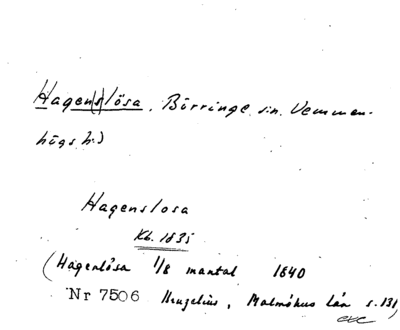 Hagen(s)lösa, Börringe sn. Vemmen-
högs h.)
Hagenslosa
Kb. 1835
(Hagenlösa 1/8 mantal 1840
Nr 7506 Neuzelius, Malmöhus län s. 131)